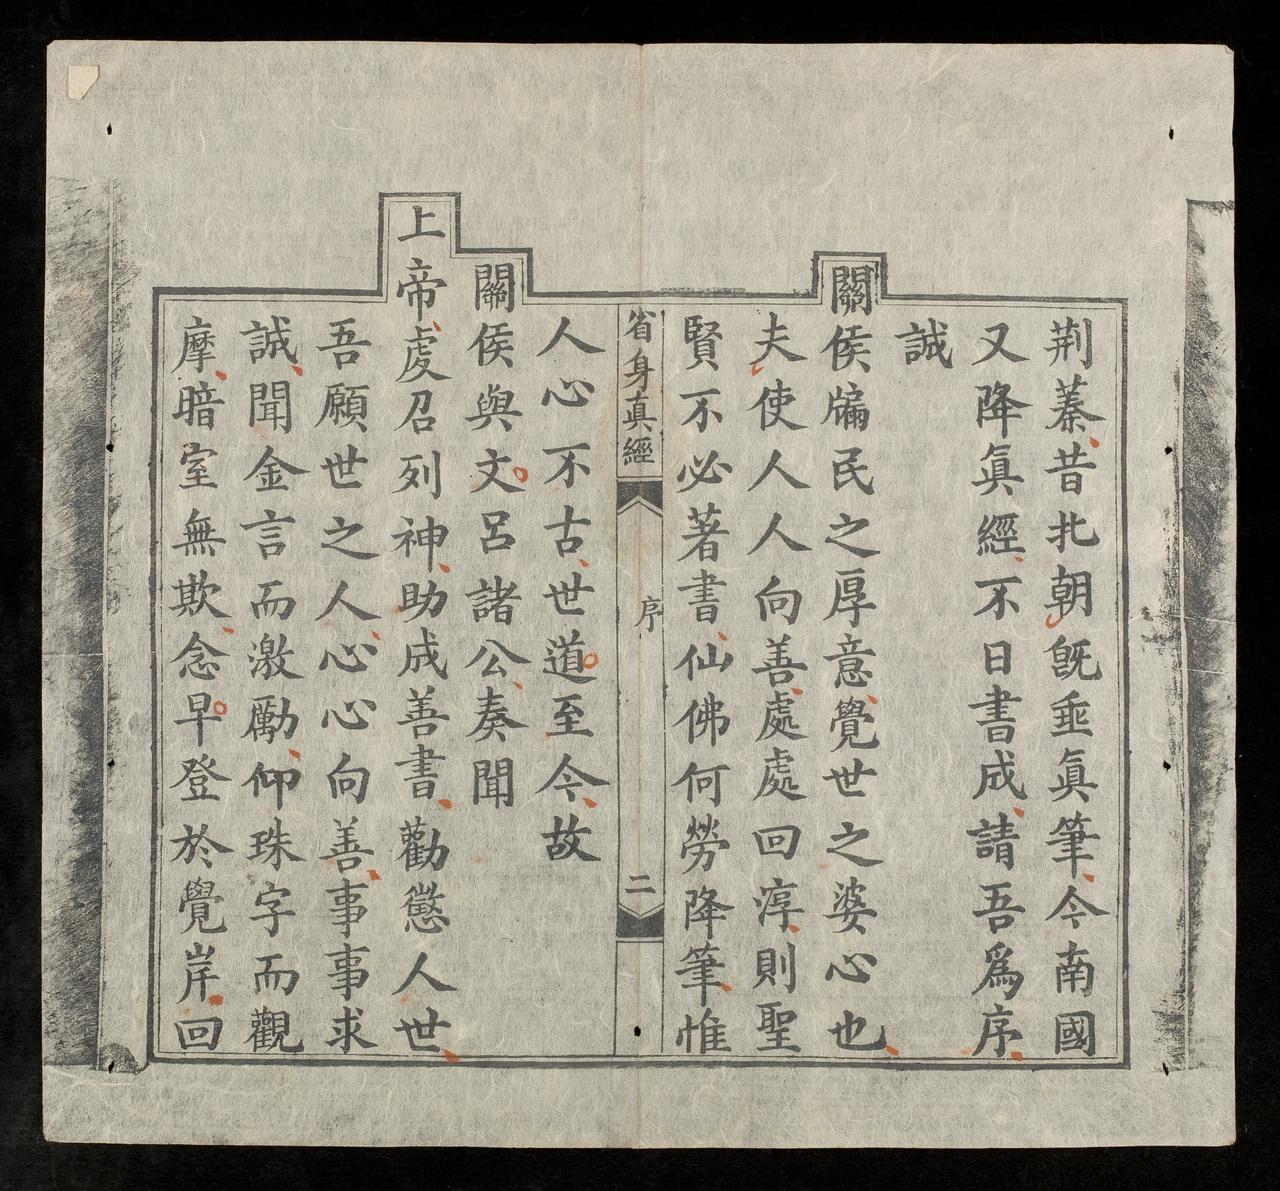 荆蓁昔北朝旣垂眞筆今南國
又降眞經不日書成請吾爲序
誠
關侯牖民之厚意覺世之婆心也
夫使人人向善處處回淳則聖
賢不必著書仙佛何勞降筆惟
省身眞經
序
二
人心不古世道至今故
關侯與文呂諸公奏聞
上帝處召列神助成善書勸懲人世
吾願世之人心心向善事事求
誠聞金言而激勵仰珠字而觀
摩暗室無欺念早登於覺岸回